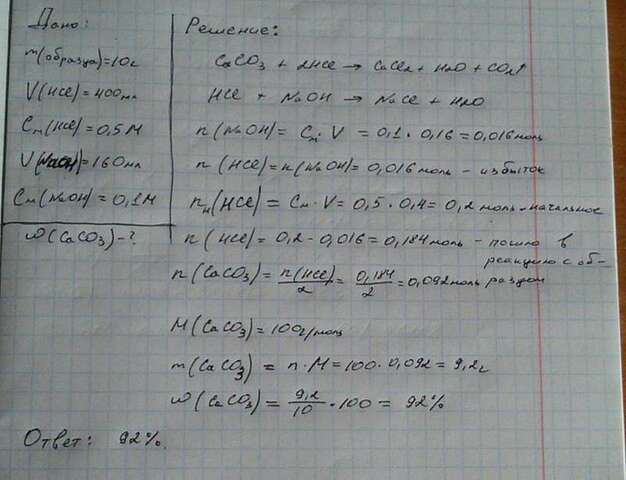 Дано:
m(образца)=10г
V(HCl)=400мл
Cм(HCl)=0,5М
V(NaOH)=160мл
Cм(NaOH)=0,1М
ω(CaCO3)-?
Решение:
CaCO3 + 2HCl → CaCl2 + H2O + CO2↑
HCl + NaOH → NaCl + H2O
n(NaOH) = Cм·V = 0,1·0,16 = 0,016моль
n(HCl)=n(NaOH)=0,016 моль - избыток
nн(HCl) = Cм·V = 0,5·0,4 = 0,2 моль - начальное
n(HCl)=0,2-0,016=0,184моль - пошло в
реакцию с об-
разцом
n(CaCO3) = n(HCl)/2 = 0,184/2 = 0,092моль
M(CaCO3)=100г/моль
m(CaCO3) = n·M = 100·0,092 = 9,2г
ω(CaCO3) = 9,2/10 · 100 = 92%
Ответ: 92%.